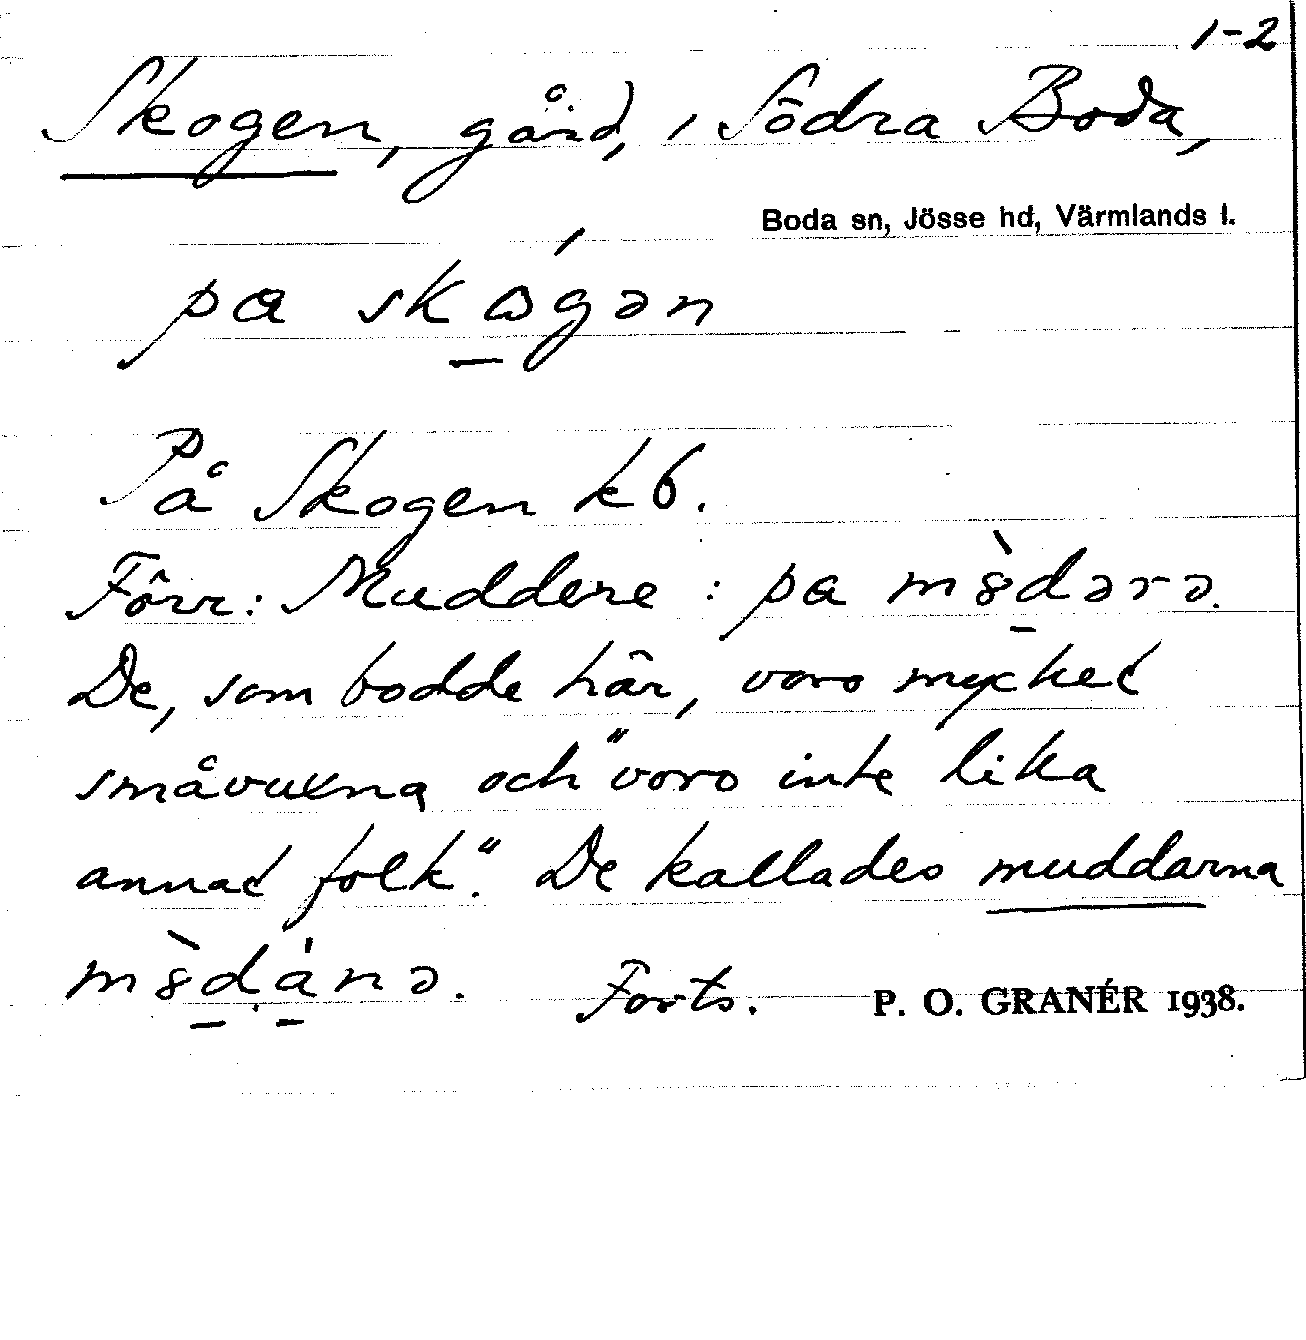 1-2
Skogen, gård, i Södra Boda,
Boda sn, Jösse hd, Värmlands l.
pa skɷ́gən
På Skogen k6.
Förr: Muddere : pa m8̀dərə.
De, som bodde här, voro mycket
småvuxna och "voro inte lika
annat folk". De kallades muddarna
m8̀dánə. Forts. P. O. GRANÉR 1938.